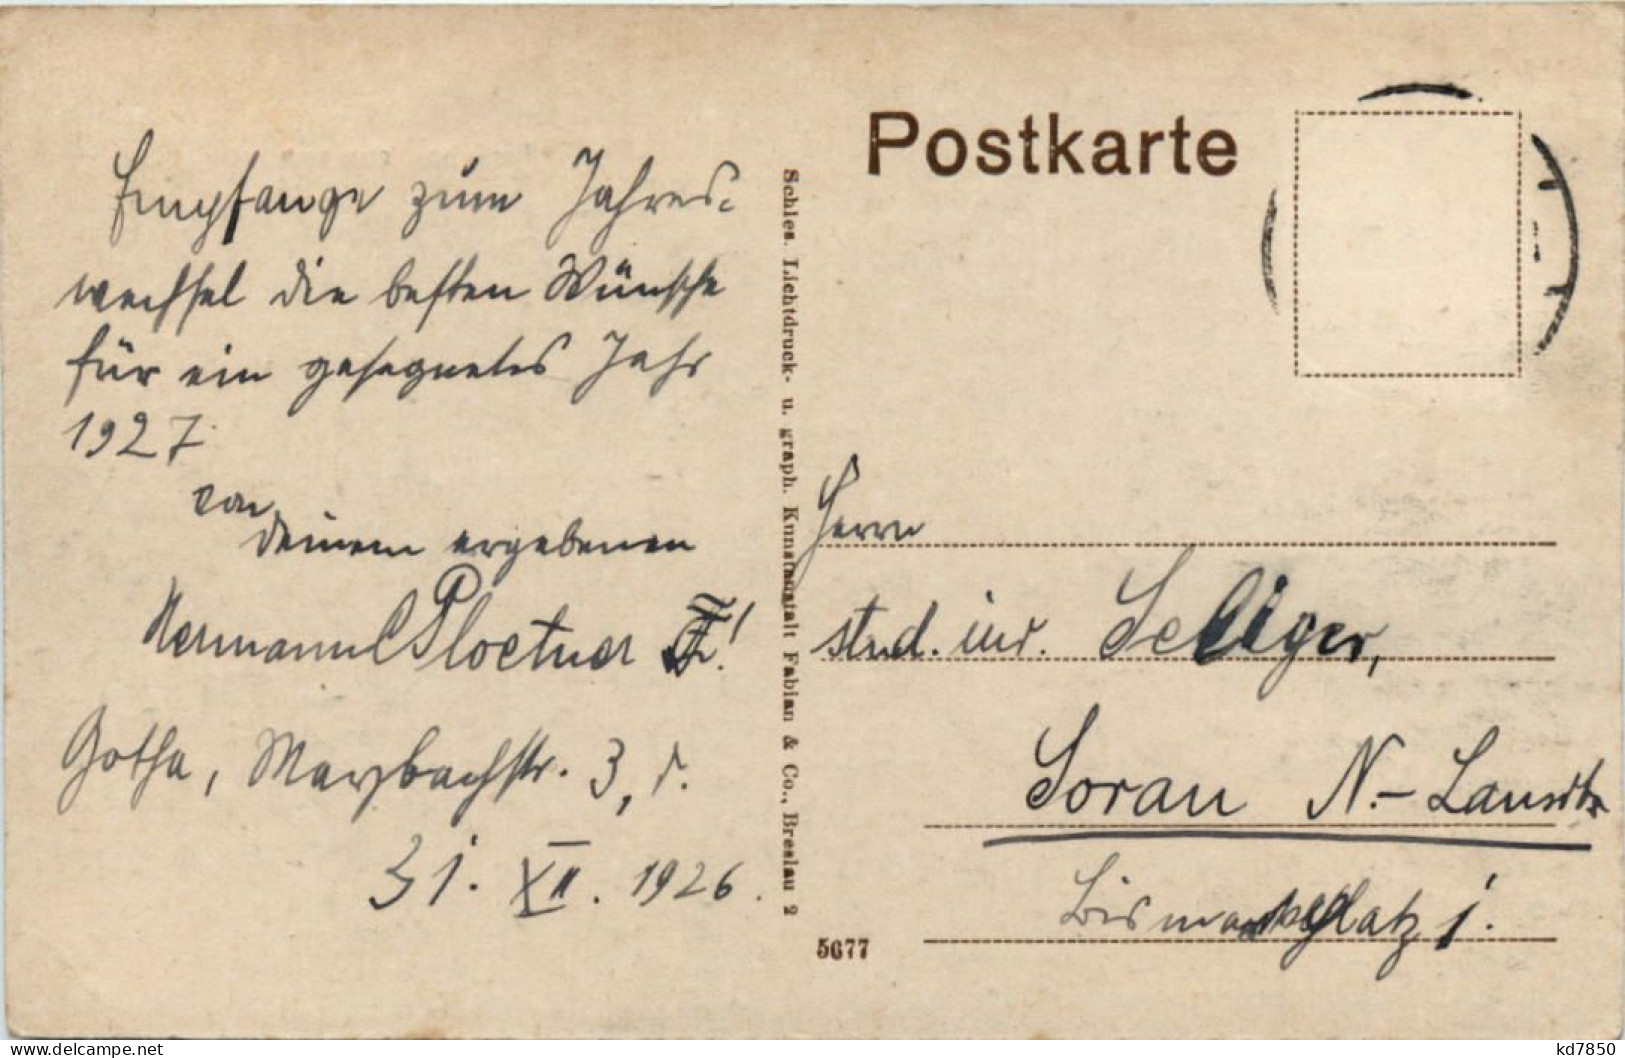 Postkarte
Empfange zum Jahres-
wechsel die besten Wünsche
für ein gesegnetes Jahr
1927
von
deinem ergebenen
Hermann Ploetner
Gotha, 3, r.
31. XII. 1926.
Schles. Lichtdruck- u. graph. Kunstanstalt Fabian & Co., Breslau 2
5677
Herrn
stud. iur. Seliger,
Sorau N.-Lausitz
Bismarckplatz 1.
kd7850
www.delcampe.net